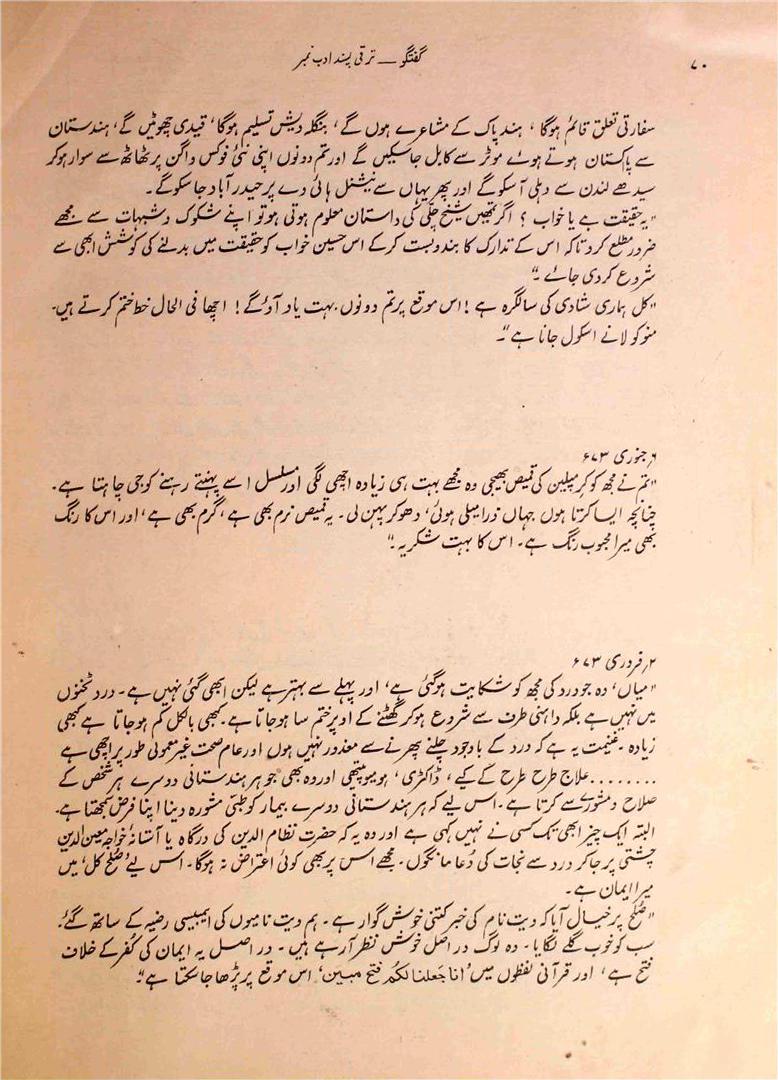 ۷۰
گفتگو — ترقی پسند ادب نمبر
سفارتی تعلق قائم ہوگا ، ہند پاک کے مشاعرے ہوں گے ، بنگلہ دیش تسلیم ہوگا ، قیدی چھوٹیں گے ، ہندستان
سے پاکستان ہوتے ہوئے موٹر سے کابل جا سکیں گے اور تم دونوں اپنی نئی فوکس واگن پر ٹھاٹھ سے سوار ہوکر
سیدھے لندن سے دہلی آسکو گے اور پھر یہاں سے نیشنل ہائی وے پر حیدرآباد جا سکو گے ۔
"یہ حقیقت ہے یا خواب ؟ اگر تمھیں شیخ چلّی کی داستان معلوم ہوتی ہو تو اپنے شکوک و شبہات سے مجھے
ضرور مطلع کردتا کہ اس کے تدارک کا بندوبست کرکے اس حسین خواب کو حقیقت میں بدلنے کی کوشش ابھی سے
شروع کردی جائے ۔"
"کل ہماری شادی کی سالگرہ ہے ! اس موقع پر تم دونوں بہت یاد آؤگے ! اچھا فی الحال خط ختم کرتے ہیں۔
منو کو لانے اسکول جانا ہے ۔"
۶ر جنوری ۷۳ء
"تم نے مجھ کو کرمپلین کی قمیص بھیجی وہ مجھے بہت ہی زیادہ اچھی لگی اور مسلسل اسے پہنتے رہنے کو جی چاہتا ہے ۔
چنانچہ ایسا کرتا ہوں جہاں ذرا میلی ہوئی ، دھو کر پہن لی ۔ یہ قمیص نرم بھی ہے ، گرم بھی ہے ، اور اس کا رنگ
بھی میرا محبوب رنگ ہے ۔ اس کا بہت شکریہ ۔"
۲ر فروری ۷۳ء
"میاں ، وہ جو درد کی مجھ کو شکایت ہوگئی ہے ، اور پہلے سے بہتر ہے لیکن ابھی گئی نہیں ہے ۔ درد ٹخنوں
میں نہیں ہے بلکہ داہنی طرف سے شروع ہوکر گھٹنے کے اوپر ختم سا ہوجاتا ہے ۔ کبھی بالکل کم ہوجاتا ہے کبھی
زیادہ ۔ غنیمت یہ ہے کہ درد کے باوجود چلنے پھرنے سے معذور نہیں ہوں اور عام صحت غیر معمولی طور پر اچھی ہے
........ علاج طرح طرح کے کیے ، ڈاکٹری ، ہومیوپیتھی اور وہ بھی جو ہر ہندستانی دوسرے ہر شخص کے
صلاح و مشورے سے کرتا ہے ۔ اس لیے کہ ہر ہندستانی دوسرے بیمار کو طبّی مشورہ دینا اپنا فرض سمجھتا ہے۔
البتہ ایک چیز ابھی تک کسی نے نہیں کہی ہے اور وہ یہ کہ حضرت نظام الدین کی درگاہ یا آستانۂ خواجہ معین الدین
چشتی پر جاکر درد سے نجات کی دُعا مانگوں ۔ مجھے اس پر بھی کوئی اعتراض نہ ہوگا ۔ اس لیے 'صُلح کل' میں
میرا ایمان ہے ۔
"صُلح پر خیال آیا کہ ویت نام کی خبر کتنی خوش گوار ہے ۔ ہم ویت نامیوں کی ایمبیسی رضیہ کے ساتھ گئے۔
سب کو خوب گلے لگایا ۔ وہ لوگ دراصل خوش نظر آرہے ہیں ۔ دراصل یہ ایمان کی کُفر کے خلاف
فتح ہے ، اور قرآنی لفظوں میں 'انا جَعلنا لكم فتح مبین' ، اس موقع پر پڑھا جاسکتا ہے ۔"